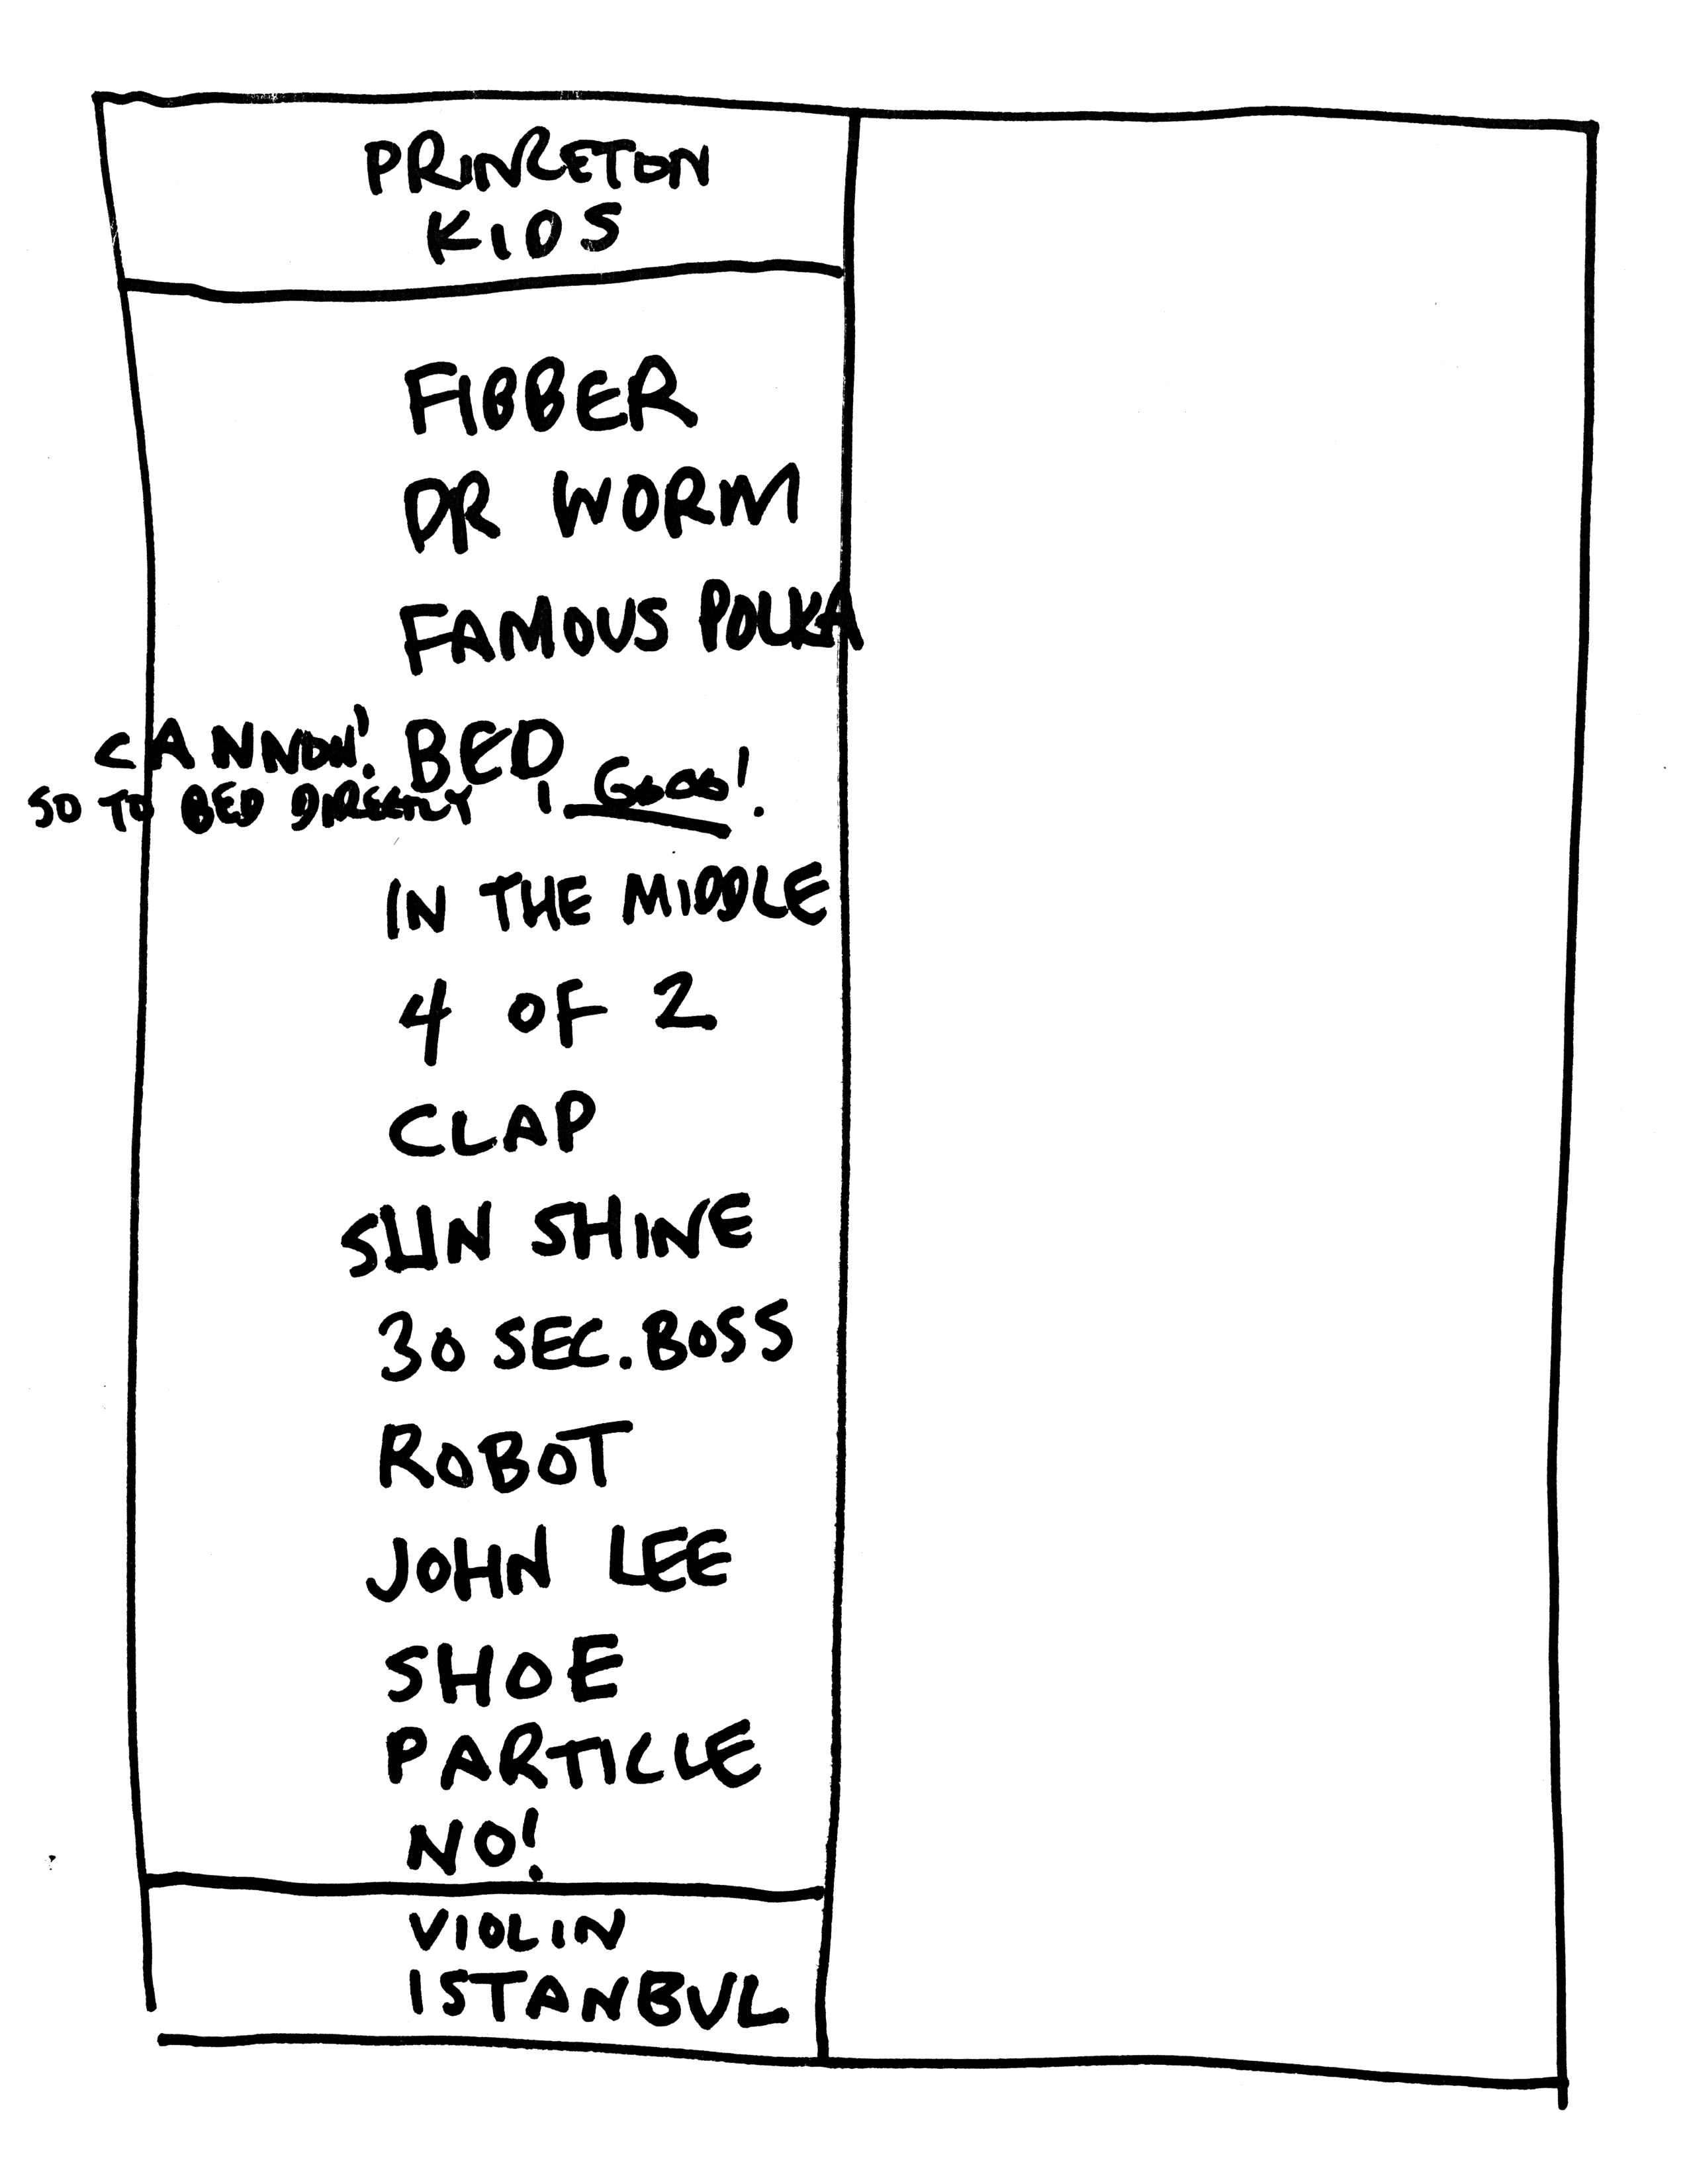 PRINCETON
KIDS
FIBBER
DR WORM
FAMOUS POLKA
CANNON! BED
SO TO BED DIRECTLY I GOOO!
IN THE MIDDLE
4 OF 2
CLAP
SUN SHINE
30 SEC. BOSS
ROBOT
JOHN LEE
SHOE
PARTICLE
NO!
VIOLIN
ISTANBUL